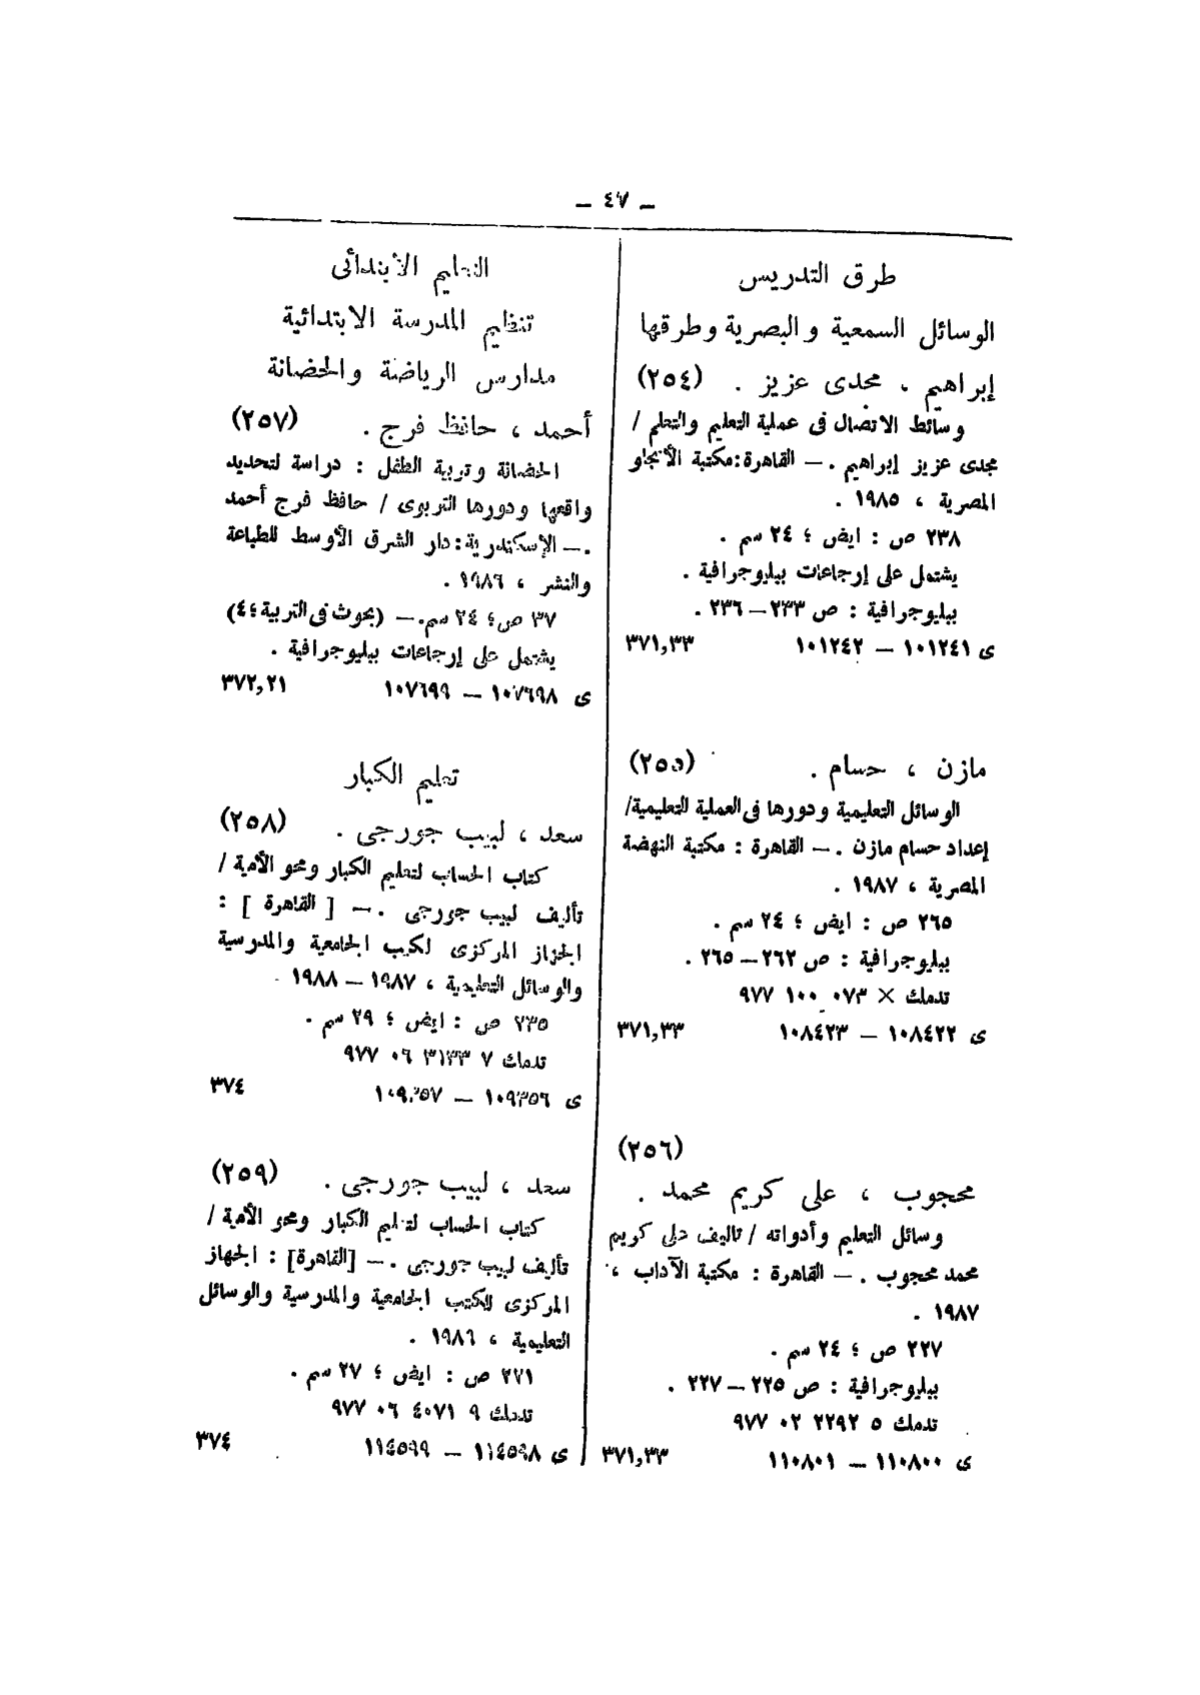 — ٤٧ —
طرق التدريس
الوسائل السمعية والبصرية وطرقها
إبراهيم ، مجدى عزيز . (٢٥٤)
وسائط الاتصال فى عملية التعليم والتعلم /
مجدى عزيز إبراهيم . — القاهرة : مكتبة الأنجلو
المصرية ، ١٩٨٥ .
٢٣٨ ص : ايض ؛ ٢٤ سم .
يشتمل على إرجاعات ببليوجرافية .
ببليوجرافية : ص ٢٣٣ — ٢٣٦ .
ى ١٠١٢٤١ — ١٠١٢٤٢ ٣٧١,٣٣
مازن ، حسام . (٢٥٥)
الوسائل التعليمية ودورها فى العملية التعليمية /
إعداد حسام مازن . — القاهرة : مكتبة النهضة
المصرية ، ١٩٨٧ .
٢٦٥ ص : ايض ؛ ٢٤ سم .
ببليوجرافية : ص ٢٦٢ — ٢٦٥ .
تدمك × ٠٧٣ ١٠٠ ٩٧٧
ى ١٠٨٤٢٢ — ١٠٨٤٢٣ ٣٧١,٣٣
(٢٥٦)
محجوب ، على كريم محمد .
وسائل التعليم وأدواته / تاليف على كريم
محمد محجوب . — القاهرة : مكتبة الآداب ،
١٩٨٧ .
٢٢٧ ص ؛ ٢٤ سم .
ببليوجرافية : ص ٢٢٥ — ٢٢٧ .
تدمك ٥ ٢٢٩٢ ٠٢ ٩٧٧
ى ١١٠٨٠٠ — ١١٠٨٠١ ٣٧١,٣٣
التعليم الأبتدائى
تنظيم المدرسة الابتدائية
مدارس الرياضة والحضانة
أحمد ، حافظ فرج . (٢٥٧)
الحضانة وتربية الطفل : دراسة لتحديد
واقعها ودورها التربوى / حافظ فرج أحمد
. — الإسكندرية : دار الشرق الأوسط للطباعة
والنشر ، ١٩٨٦ .
٣٧ ص ؛ ٢٤ سم . — (بحوث فى التربية ؛ ٤)
يشتمل على إرجاعات ببليوجرافية .
ى ١٠٧٦٩٨ — ١٠٧٦٩٩ ٣٧٢,٢١
تعليم الكبار
سعد ، لبيب جورجى . (٢٥٨)
كتاب الحساب لتعليم الكبار ومحو الأمية /
تأليف لبيب جورجى . — [ القاهرة ] :
الجهاز المركزى لكتب الجامعية والمدرسية
والوسائل التعليمية ، ١٩٨٧ — ١٩٨٨ .
٢٣٥ ص : ايض ؛ ٢٩ سم .
تدمك ٧ ٣١٣٣ ٠٦ ٩٧٧
ى ١٠٩٣٥٦ — ١٠٩٣٥٧ ٣٧٤
سعد ، لبيب جورجى . (٢٥٩)
كتاب الحساب لتعليم الكبار ومحو الأمية /
تأليف لبيب جورجى . — [القاهرة] : الجهاز
المركزى للكتب الجامعية والمدرسية والوسائل
التعليمية ، ١٩٨٦ .
٢٧١ ص : ايض ؛ ٢٧ سم .
تدمك ٩ ٤٠٧١ ٠٦ ٩٧٧
ى ١١٤٥٩٨ — ١١٤٥٩٩ ٣٧٤